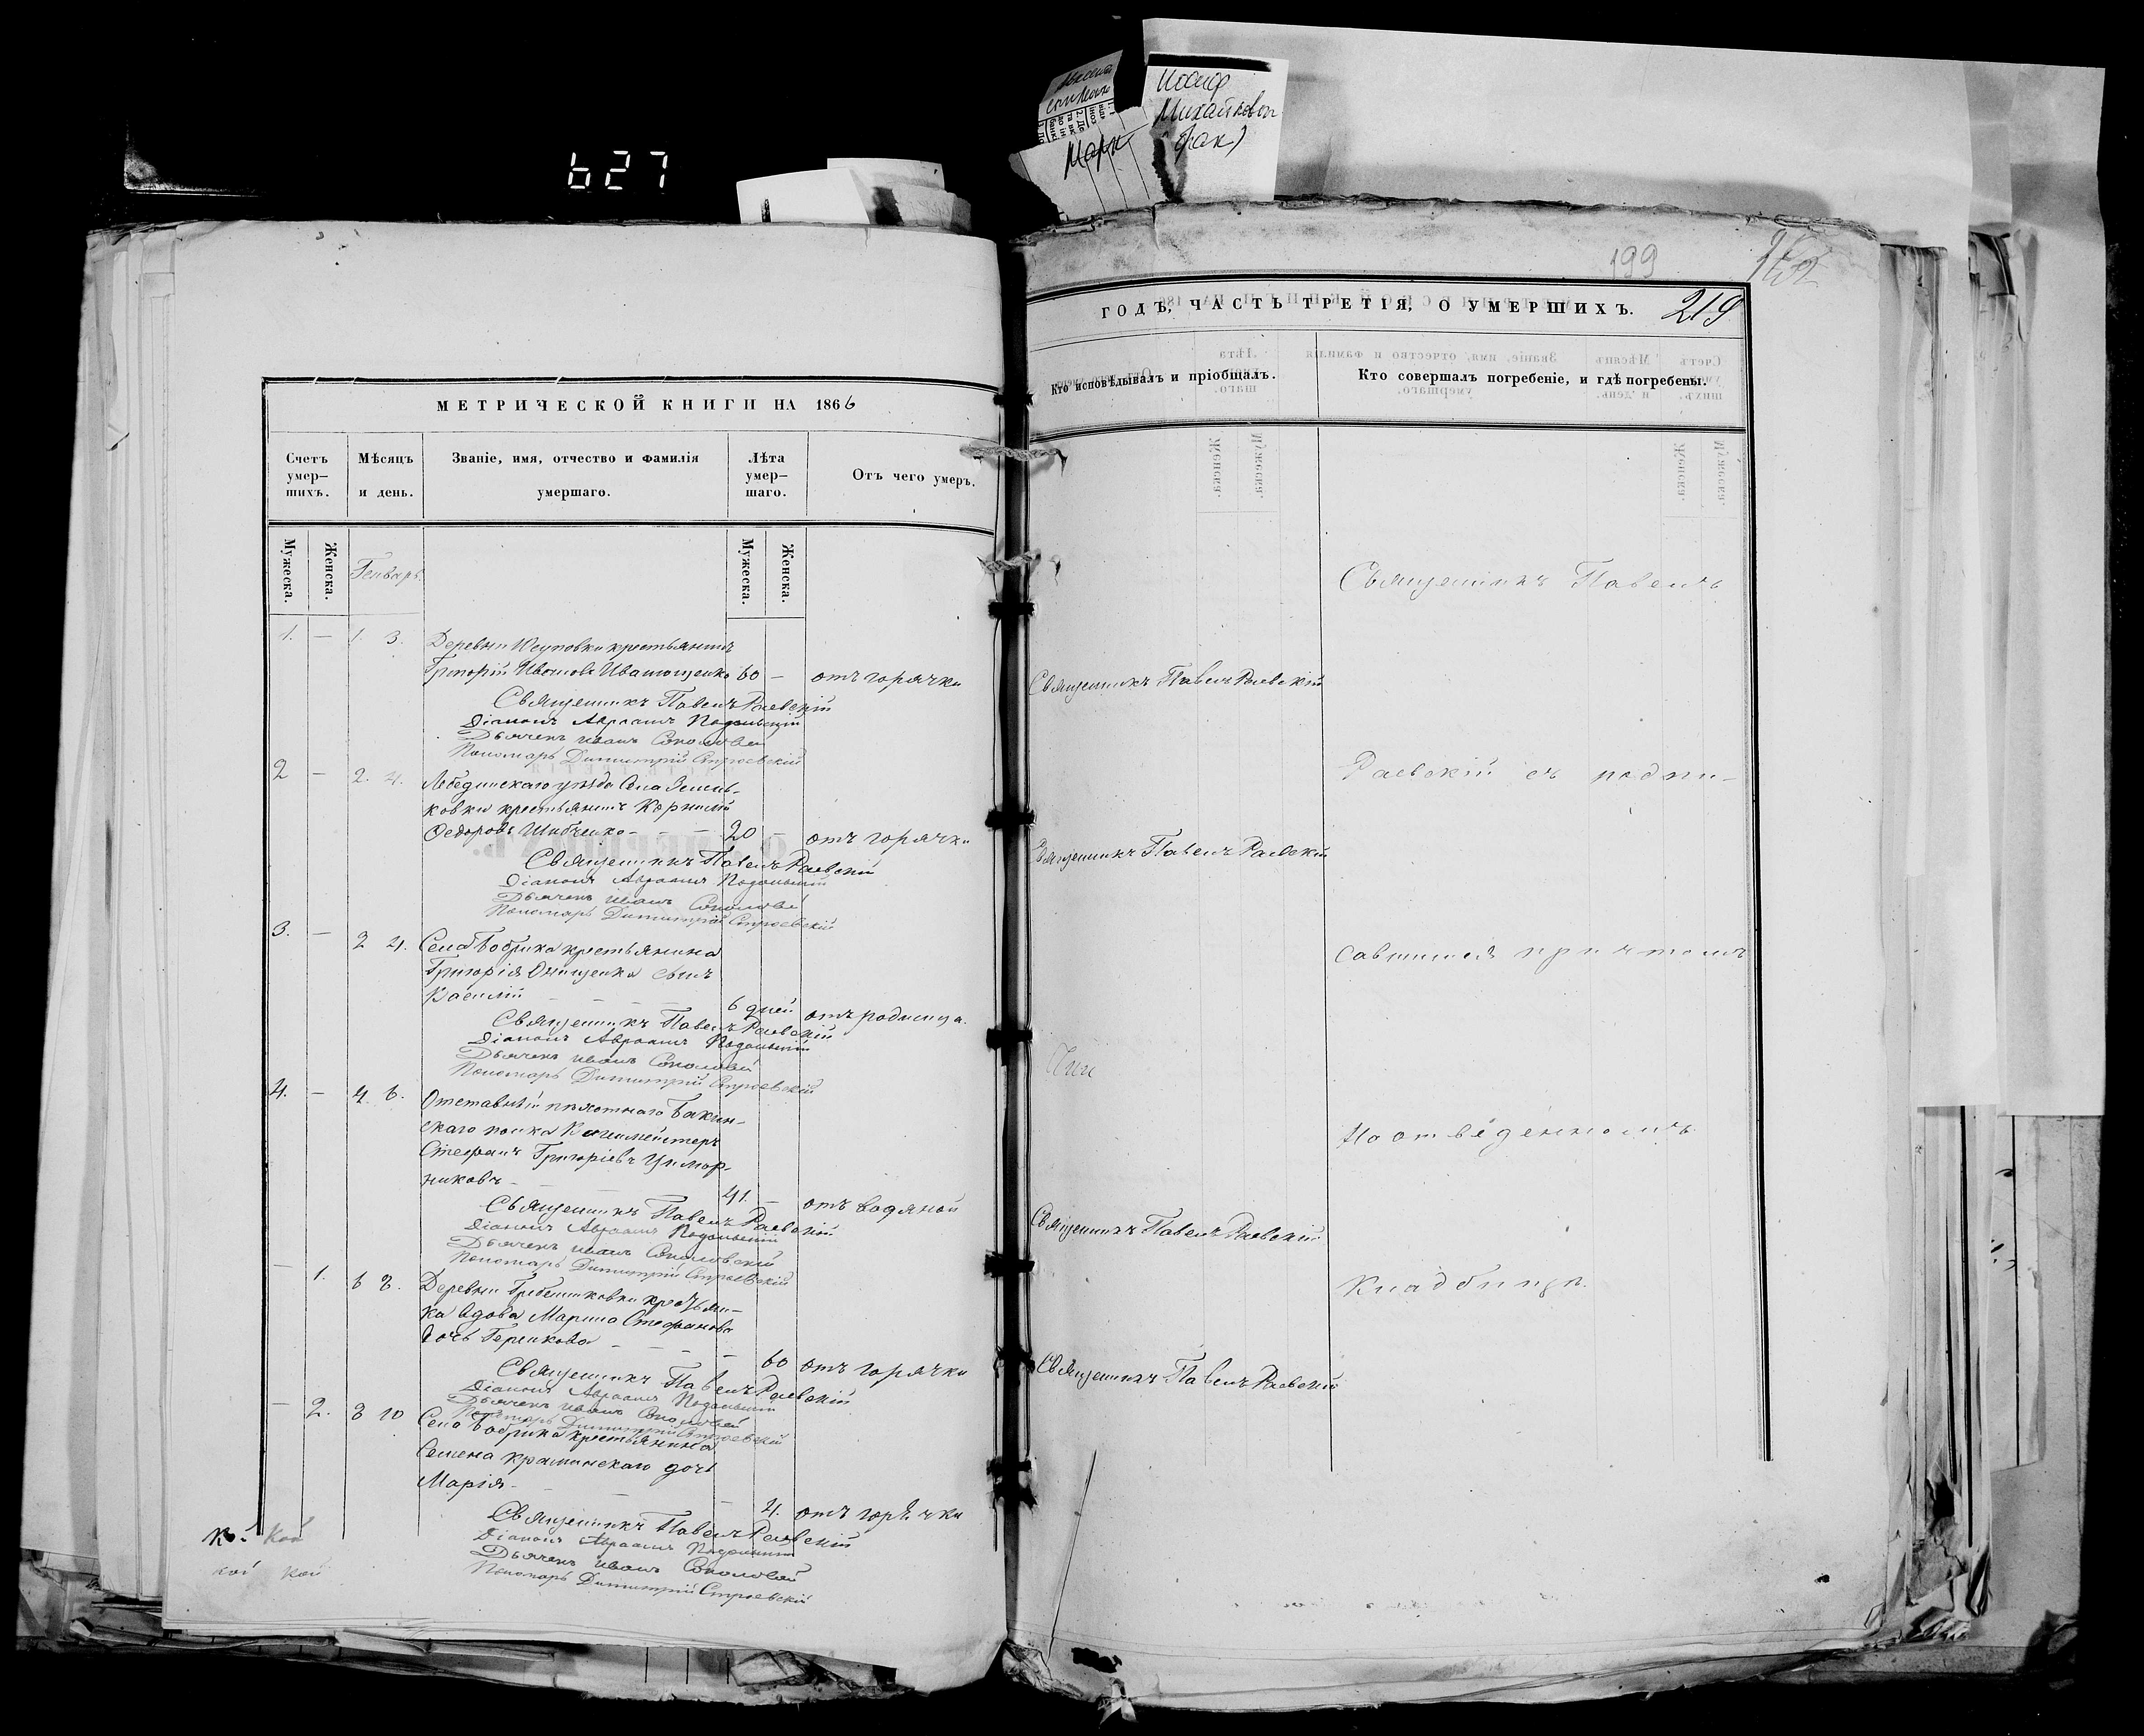 627
Марк
Иосиф
Михайлович
199
219
МЕТРИЧЕСКОЙ КНИГИ НА 1866
Счетъ умер-шихъ.
Мѣсяцъ и день.
Званіе, имя, отчество и фамилія умершаго.
Лѣта умер-шаго.
Отъ чего умеръ.
Мужеска.
Женска.
Генварь.
Мужеска.
Женска.
1. — 1. 3. Деревни Юсуповки крестьянинъ
Григорій Ивановъ Иващенко 60 — отъ горячки
Священникъ Павелъ Раевскій
Діаконъ Авраамъ Подольскій
Дьячекъ Иванъ Соколовскій
Пономарь Димитрій Строевскій
2 — 2. 4. Лебединскаго уѣзда Села
ковки крестьянинъ Корнилій
Федоровъ Шевченко — — — 20 — отъ горячки
Священникъ Павелъ Раевскій
Діаконъ Авраамъ Подольскій
Дьячекъ Иванъ Соколовскій
Пономарь Димитрій Строевскій
3. — 2 4. Села Бобрика крестьянина
Григорія Онищенка сынъ
Василій — — — — 6 дней отъ родимца.
Священникъ Павелъ Раевскій
Діаконъ Авраамъ Подольскій
Дьячекъ Иванъ Соколовскій
Пономарь Димитрій Строевскій
4. — 4 6. Отставный пѣхотнаго Бакин-
скаго полка
Стефанъ Григоріевъ
никовъ — — — 41. — отъ водяной
Священникъ Павелъ Раевскій
Діаконъ Авраамъ Подольскій
Дьячекъ Иванъ Соколовскій
Пономарь Димитрій Строевскій
— 1. 6 8. Деревни Гребенниковки крестьян-
ка вдова Марина Стефанова
дочь — — — — 60 отъ горячки
Священникъ Павелъ Раевскій
Діаконъ Авраамъ Подольскій
Дьячекъ Иванъ Соколовскій
Пономарь Димитрій Строевскій
— 2. 8 10 Села Бобрика крестьянина
Семена Краминскаго дочь
Марія — — — 4. отъ горячки
Священникъ Павелъ Раевскій
Діаконъ Авраамъ Подольскій
Дьячекъ Иванъ Соколовскій
Пономарь Димитрій Строевскій
кой
кой кой
ГОДЪ, ЧАСТЬ ТРЕТІЯ, О УМЕРШИХЪ.
Кто исповѣдывалъ и пріобщалъ.
Кто совершалъ погребеніе, и гдѣ погребены.
Священникъ Павелъ
Священникъ Павелъ Раевскій
Раевскій съ подпи-
Священникъ Павелъ Раевскій
савшимся причтомъ
На отведенномъ
Священникъ Павелъ Раевскій
Кладбищѣ.
Священникъ Павелъ Раевскій